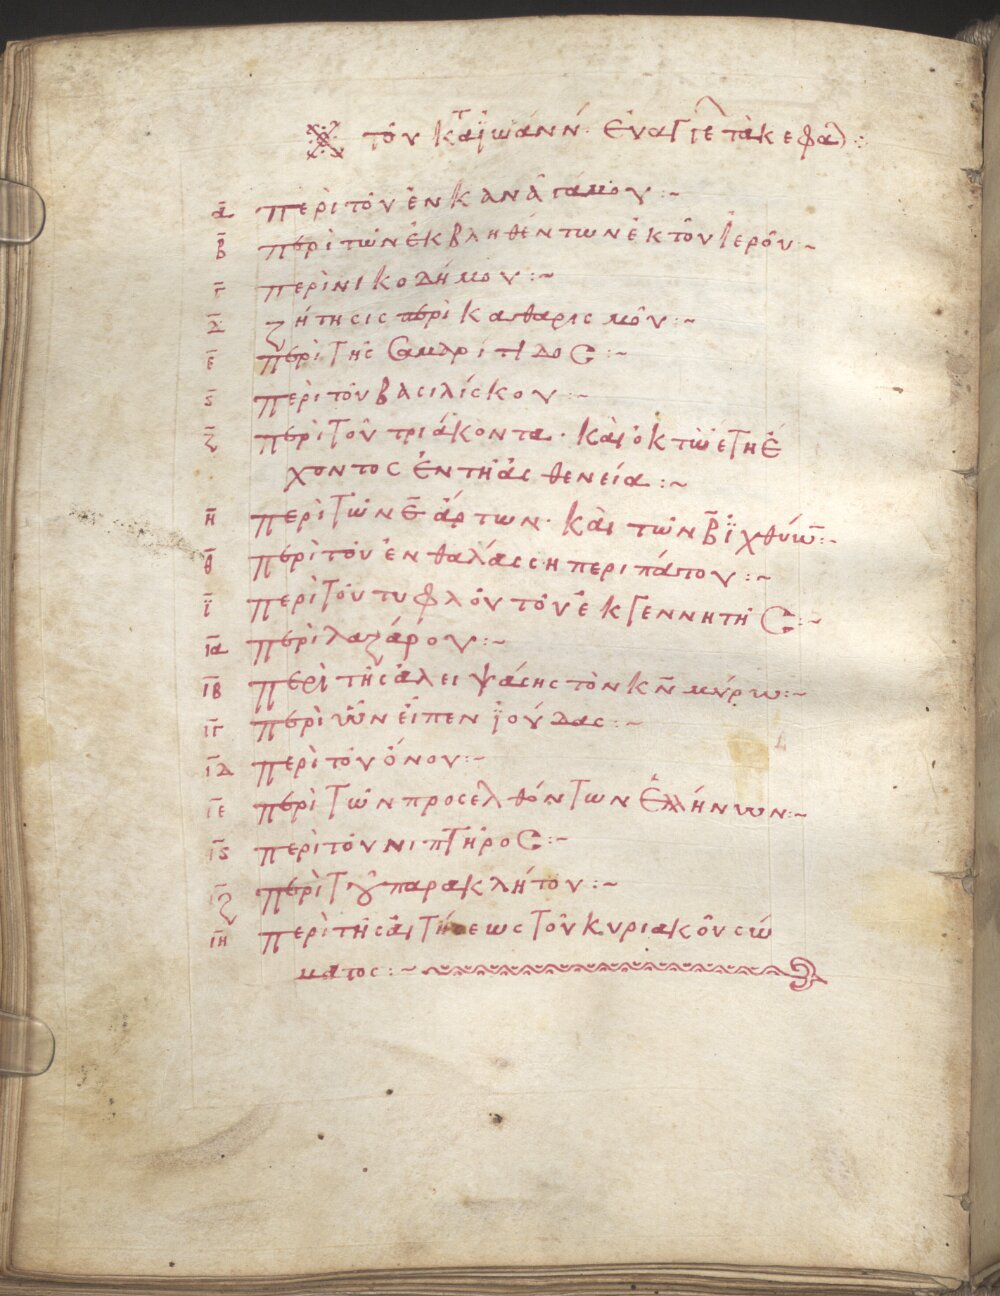 τοῦ κατ ϊωάνν· ἐυαγγε τὰ κεφαλ :
α περὶ τοῦ ἐν κανᾶ γάμου :~
β περὶ τῶν ἐκβληθέντων ἐκ τοῦ ἱεροῦ ~
γ περὶ νικοδήμου :~
δ ζήτησις περὶ καθαρισμοῦ :~
ε περὶ τῆς σαμαρίτιδος :~
ς περὶ τοῦ βασιλίσκου :~
ζ περὶ τοῦ τριάκοντα· καὶ ὀκτὼ ἔτη ἔ
χοντος ἐν τῆ ἀσθενεία :~
η περὶ τῶν ε ἄρτων· καὶ τῶν β ϊχθύω̅ :~
θ περὶ τοῦ ἐν θαλάσση περιπάτου :~
ϊ περὶ τοῦ τυφλοῦ τοῦ ἐκ γεννητῆς :~
ια περὶ λαζάρου :~
ιβ περὶ τῆς ἀλειψάσης τὸν κ̅ν̅ μύρω :~
ιγ περὶ ὧν εἶπεν ϊούδας :~
ιδ περὶ τοῦ ὄνου :~
ιε περὶ τῶν προσελθόντων ἑλλήνων :~
ις περὶ τοῦ νιπτῆρος :~
ιζ περὶ τοῦ παρακλήτου :~
ιη περὶ τῆς αἰτήσεως τοῦ κυριακοῦ σώ
ματος :~